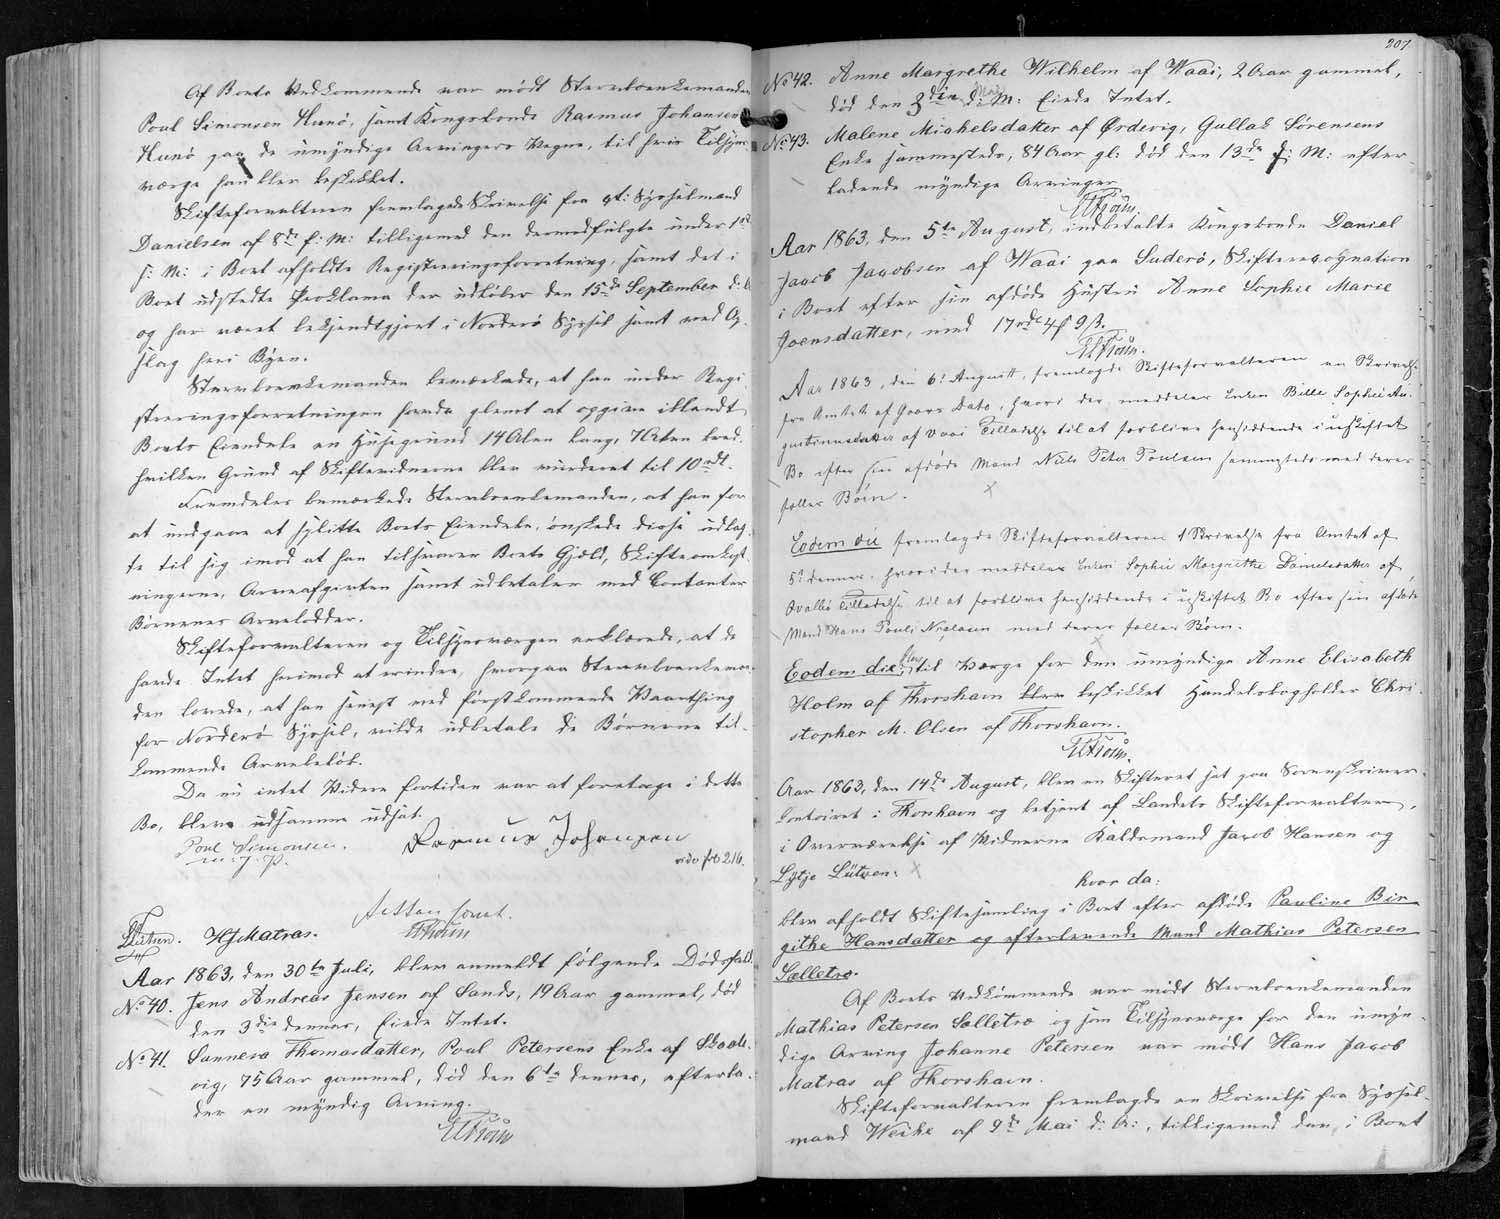 Af Boets Vedkommende var mødt Stervboenkemanden
Poul Simonsen Hunø, samt Kongsbonde Rasmus Johansen
Hunø paa de umyndige Arvingers Vegne, til hvis Tilsyns-
værge han blev beskikket.
Skifteforvalteren fremlagde Skrivelse fra cst: Sysselmand
Danielsen af 8de f: M: tilligemed den dermedfulgte under 1ste
s: M: i Boet afholdte Registreringsforretning, samt det i
Boet udstedte Proklama der udløber den 15de September d: A:
og har været bekjendtgjort i Norderø Syssel samt ved Op-
slag her i Byen.
Stervboenkemanden bemærkede, at han under Regi-
streringsforretningen havde glemt at opgive iblandt
Boets Eiendele en Husegrund 14 Alen lang, 7 Alen bred
hvilken Grund af Skiftevidnerne blev vurderet til 10 rdl.
Fremdeles bemærkede Stervboenkemanden, at han for
at undgaae at splitte Boets Eiendele, ønskede disse udlag-
te til sig imod at han tilsvarer Boets Gjæld, Skifteomkost-
ningerne, Arveafgiften samt udbetaler med Contanter
Børnenes Arvelodder.
Skifteforvalteren og Tilsynsværgen erklærede, at de
havde Intet herimod at erindre, hvorpaa Stervboenkeman-
den lovede, at han senest ved førstkommende Vaarthing
for Norderø Syssel, vilde udbetale de Børnene til-
kommende Arvebeløb.
Da nu intet Videre fortiden var at foretage i dette
Bo, blev samme udsat.
Poul Simonsen.
m. f. P.
Rasmus Johansen
vide fol 216.
Attesteret.
HTroün
Lützen. HJMatras.
Aar 1863, den 30te Juli, blev anmeldt følgende Dødsfald.
No 40. Jens Andreas Jensen af Sands, 19 Aar gammel, død
den 3die dennes, Eiede Intet.
No 41. Sunneva Thomasdatter, Poul Petersens Enke af Skaale-
vig, 75 Aar gammel, død den 6te dennes, efterla-
der en myndig Arving.
HTroün
207.
No 42. Anne Margrethe Wilhelm af Waai, 2 Aar gammel,
død den 3die d: M: Eiede Intet.
Mai
No 43. Malene Michelsdatter af Ørdevig, Gullak Sørensens
Enke sammesteds, 84 Aar gl: død den 13de f: M: efter-
ladende myndige Arvinger.
HTroün
Aar 1863, den 5te August, indbetalte Kongsbonde Daniel
Jacob Jacobsen af Waai paa Suderø, Skifterecognation
i Boet efter sin afdøde Hustru Anne Sophie Marie
Joensdatter, med 17 rdl 4 ₰ 9 ß.
HTroün.
Aar 1863, den 6t August, fremlagde Skifteforvalteren en Skrivelse
fra Amtet af Gaars Dato, hvori der meddeles Enken Bille Sophie Au-
gustinusdatter af Vaai Tilladelse til at forblive hensiddende i uskiftet
Bo efter sin afdøde Mand Niels Peter Poulsen sammesteds med deres
fælles Børn.
Eodem die fremlagde Skifteforvalteren 1 Skrivelse fra Amtet af
5t dennes, hvori der meddeles Enken Sophie Margrethe Danielsdatter af
Qvalbø Tilladelse til at forblive hensiddende i uskiftet Bo efter sin afdøde
Mand Hans Pouli Niclasen med deres fælles Børn.
Eodem die blev til Værge for den umyndige Anne Elisabeth
Holm af Thorshavn blev beskikket Handelsbogholder Chri-
stopher M. Olsen af Thorshavn.
HTroün.
Aar 1863, den 14de August, blev en Skifteret sat paa Sorenskriver-
contoiret i Thorshavn og betjent af Landets Skifteforvalter,
i Overværelse af Vidnerne Kaldsmand Jacob Hansen og
Lÿtje Lützen.
hvor da:
blev afholdt Skiftesamling i Boet efter afdøde Pauline Bir-
githe Hansdatter og efterlevende Mand Mathias Petersen
Sælletræ.
Af Boets Vedkommende var mødt Stervboenkemanden
Mathias Petersen Sælletræ og som Tilsynsværge for den umyn-
dige Arving Johanne Petersen var mødt Hans Jacob
Matras af Thorshavn.
Skifteforvalteren fremlagde en Skrivelse fra Syssel-
mand Weihe af 9de Mai d: A:, tilligemed den, i Boet